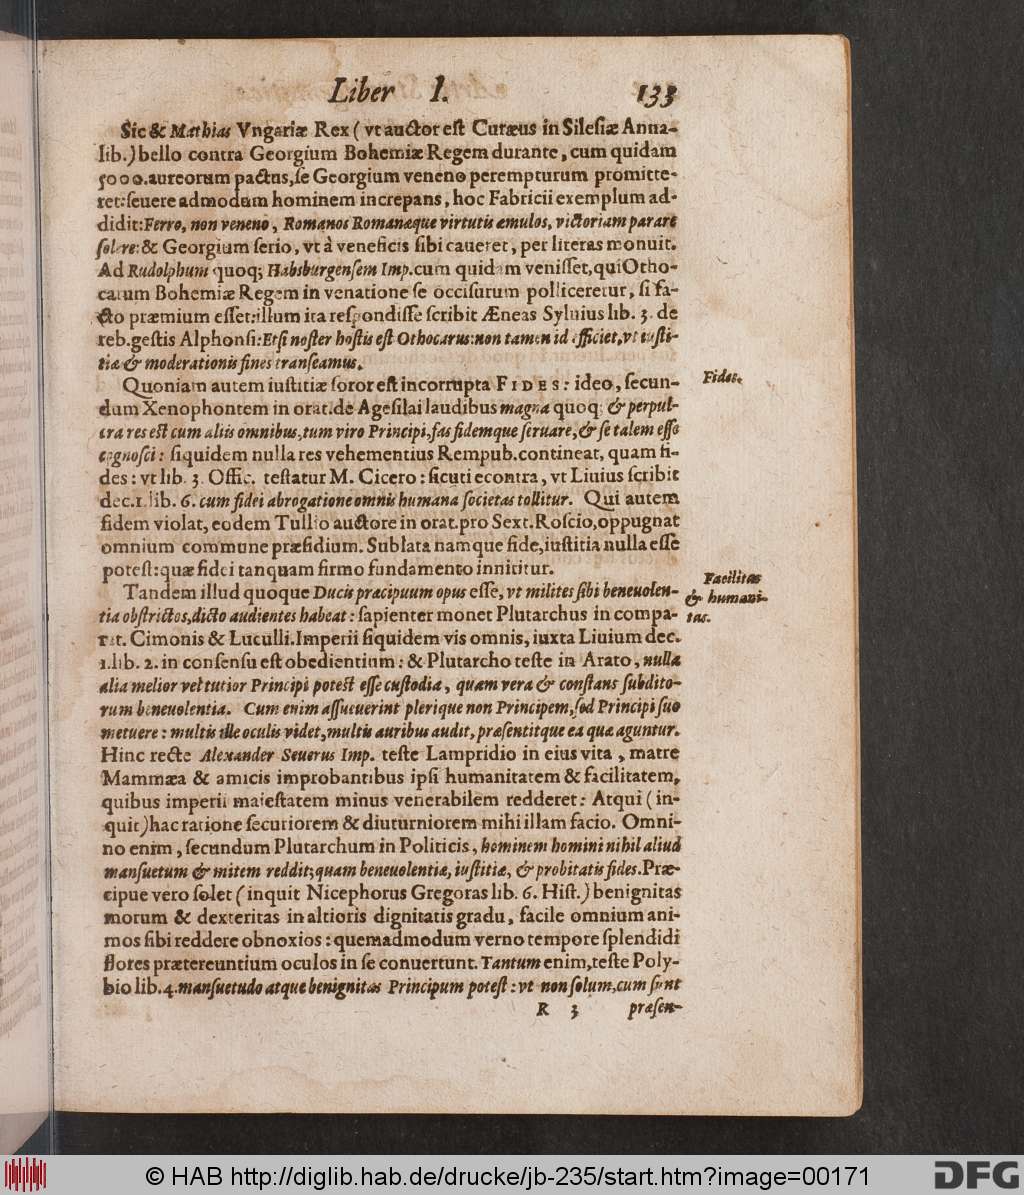 Liber I. 133
Sic & Mathias Vngariæ Rex (vt auctor est Curæus in Silesiæ Anna-
lib.) bello contra Georgium Bohemiæ Regem durante, cum quidam
5000. aureorum pactus, se Georgium veneno perempturum promitte-
ret: seuere admodum hominem increpans, hoc Fabricii exemplum ad-
didit: Ferro, non veneno, Romanos Romanæque virtutis æmulos, victoriam parare
solere: & Georgium serio, vt à veneficis sibi caueret, per literas monuit.
Ad Rudolphum quoq; Habsburgensem Imp. cum quidam venisset, qui Otho-
carum Bohemiæ Regem in venatione se occisurum polliceretur, si fa-
cto præmium esset: illum ita respondisse scribit Æneas Syluius lib. 3. de
reb. gestis Alphonsi: Etsi noster hostis est Othocarus: non tamen id efficiet, vt iusti-
tiæ & moderationis fines transeamus.
Quoniam autem iustitiæ soror est incorrupta FIDES: ideo, secun-
dum Xenophontem in orat. de Agesilai laudibus magna quoq; & perpul-
cra res est cum aliis omnibus, tum viro Principi, fas fidemque seruare, & se talem esse
cognosci: siquidem nulla res vehementius Rempub. contineat, quam fi-
des: vt lib. 3. Offic. testatur M. Cicero: sicuti econtra, vt Liuius scribit
dec. 1. lib. 6. cum fidei abrogatione omnis humana societas tollitur. Qui autem
fidem violat, eodem Tullio auctore in orat. pro Sext. Roscio, oppugnat
omnium commune præsidium. Sublata namque fide, iustitia nulla esse
potest: quæ fidei tanquam firmo fundamento innititur.
Tandem illud quoque Ducis præcipuum opus esse, vt milites sibi beneuolen-
tia obstrictos, dicto audientes habeat: sapienter monet Plutarchus in compa-
rat. Cimonis & Luculli. Imperii siquidem vis omnis, iuxta Liuium dec.
1. lib. 2. in consensu est obedientium: & Plutarcho teste in Arato, nulla
alia melior vel tutior Principi potest esse custodia, quam vera & constans subdito-
rum beneuolentia. Cum enim assueuerint plerique non Principem, sed Principi suo
metuere: multis ille oculis videt, multis auribus audit, præsentitque ea quæ aguntur.
Hinc recte Alexander Seuerus Imp. teste Lampridio in eius vita, matre
Mammæa & amicis improbantibus ipsi humanitatem & facilitatem,
quibus imperii maiestatem minus venerabilem redderet: Atqui (in-
quit) hac ratione securiorem & diuturniorem mihi illam facio. Omni-
no enim, secundum Plutarchum in Politicis, hominem homini nihil aliud
mansuetum & mitem reddit; quam beneuolentiæ, iustitiæ, & probitatis fides. Præ-
cipue vero solet (inquit Nicephorus Gregoras lib. 6. Hist.) benignitas
morum & dexteritas in altioris dignitatis gradu, facile omnium ani-
mos sibi reddere obnoxios: quemadmodum verno tempore splendidi
flores prætereuntium oculos in se conuertunt. Tantum enim, teste Poly-
bio lib. 4. mansuetudo atque benignitas Principum potest: vt non solum, cum sunt
R 3 præsen-
Fides.
Facilitas
& humani-
tas.
© HAB http://diglib.hab.de/drucke/jb-235/start.htm?image=00171
DFG